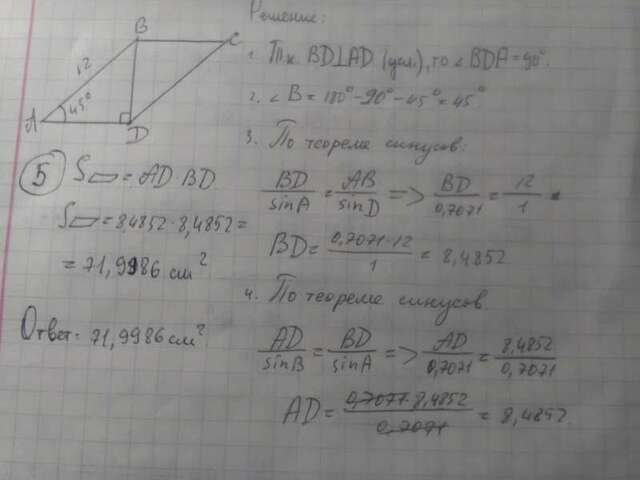 B
C
12
45°
A
D
Решение:
1. Т.к. BD⊥AD (усл.), то ∠BDA = 90°.
2. ∠B = 180° - 90° - 45° = 45°
3. По теореме синусов:
BD/sinA = AB/sinD => BD/0,7071 = 12/1
BD = 0,7071·12/1 = 8,4852
4. По теореме синусов.
AD/sinB = BD/sinA => AD/0,7071 = 8,4852/0,7071
AD = 0,7071·8,4852/0,7071 = 8,4852.
5 S▱ = AD·BD
S▱ = 8,4852·8,4852 =
= 71,9986 см²
Ответ: 71,9986 см².